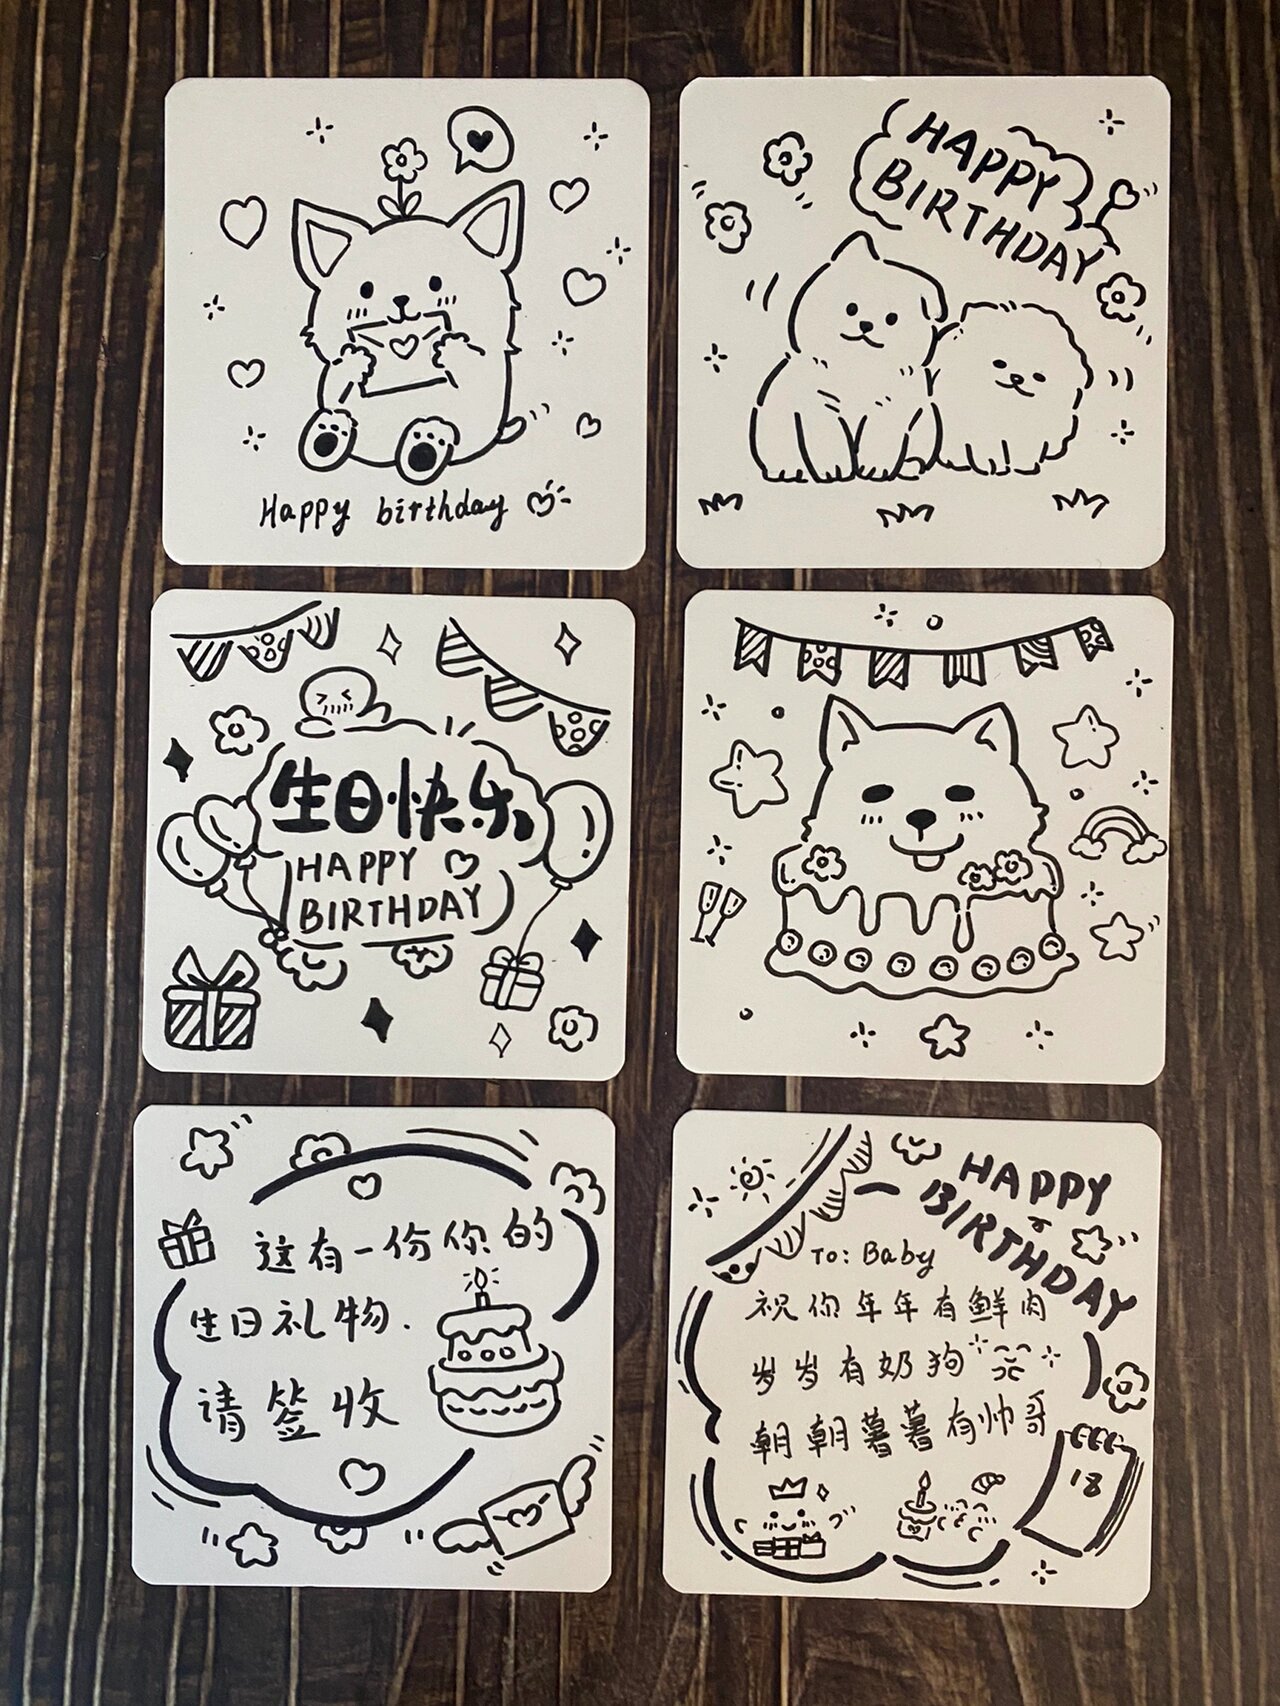 Happy birthday
HAPPY
BIRTHDAY
生日快乐
HAPPY
BIRTHDAY
这有一份你的
生日礼物.
请签收
HAPPY
BIRTHDAY
To: Baby
祝你年年有鲜肉
岁岁有奶狗
朝朝薯薯有帅哥
18